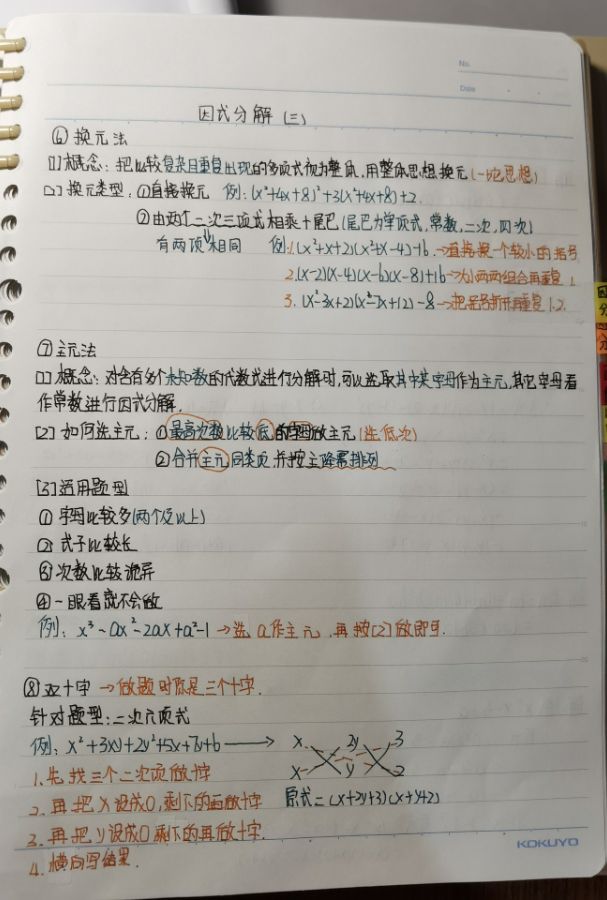 No.
Date
因式分解 (三)
⑥ 换元法
[1] 概念：把比较复杂且重复出现的多项式视为整体，用整体思想换元(一坨思想)
[2] 换元类型：①直接换元 例：(x²+4x+8)²+3(x²+4x+8)+2.
②由两个二次三项式相乘+尾巴(尾巴为单项式,常数,二次,四次)
有两项相同 例:1.(x²+x+2)(x²+x-4)-16.→直接换一个较小的括号
2.(x-2)(x-4)(x-6)(x-8)+16→大小两两组合再重复1.
3.(x²-3x+2)(x²-7x+12)-8→把括号拆开再重复1.2.
⑦主元法
[1] 概念：对含有多个未知数的代数式进行分解时,可以选取其中某字母作为主元,其它字母看
作常数进行因式分解.
[2] 如何选主元：①最高次数比较低的字母做主元(选低次)
②合并主元同类项,并按主降幂排列
[3]适用题型
① 字母比较多(两个及以上)
② 式子比较长
③次数比较诡异
④一眼看就不会做
例：x³-ax²-2ax+a²-1→选a作主元,再按[2]做即可.
⑧双十字→做题时你是三个十字.
针对题型:二次六项式
例：x²+3xy+2y²+5x+7y+6 → x 2y 3
1.先找三个二次项做十字 x y 2
2.再把x设成0,剩下的再做十字 原式=(x+2y+3)(x+y+2)
3.再把y设成0剩下的再做十字.
4.横向写结果.
KOKUYO